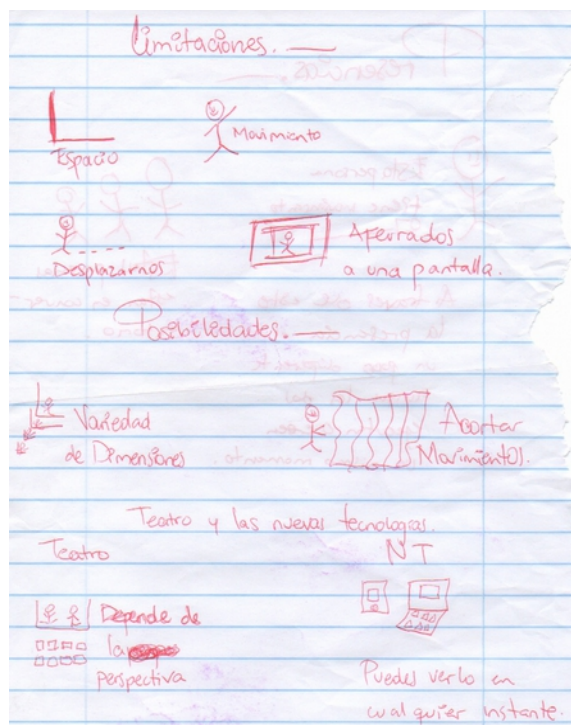 Limitaciones.
Espacio
Movimiento
Desplazarnos
Aperrados
a una pantalla.
Posibilidades.
Variedad
de Dimensiones
Acortar
Movimientos.
Teatro y las nuevas tecnologías.
Teatro
NT
Depende de
la
perspectiva
Puedes verlo en
cualquier instante.